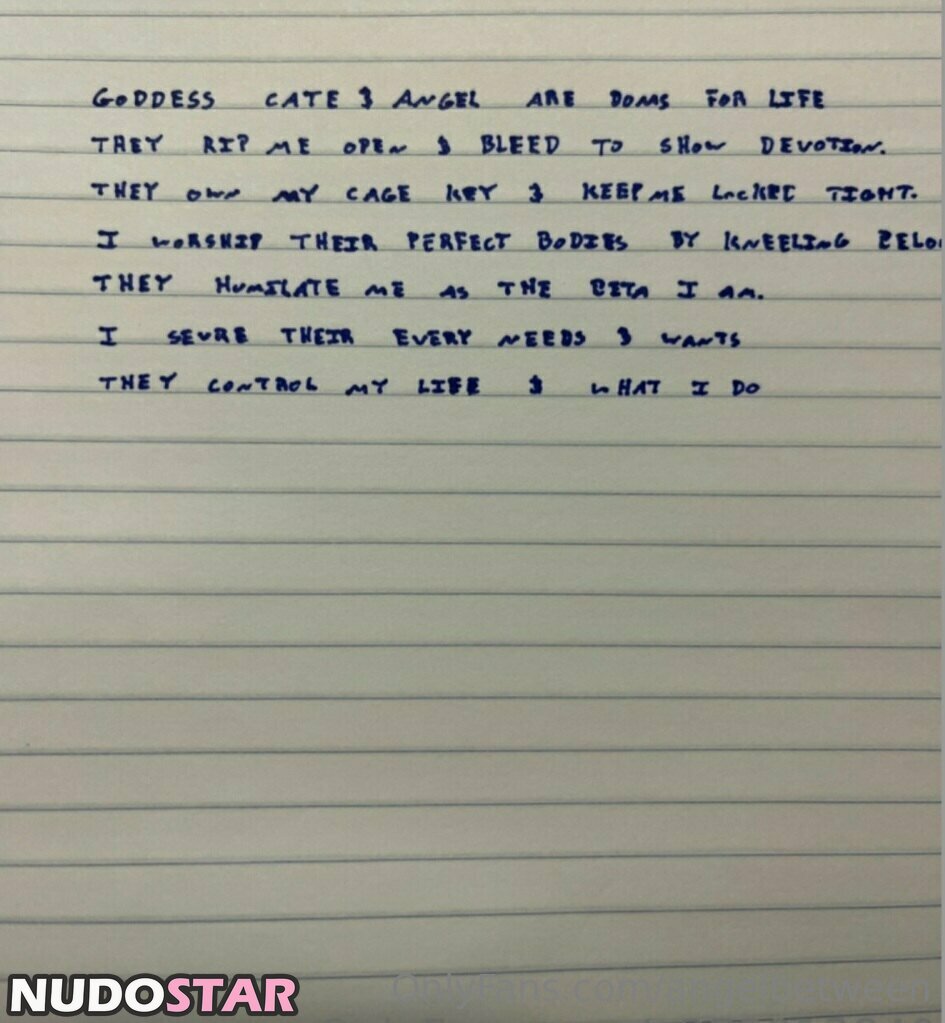 GODDESS CATE & ANGEL ARE DOMS FOR LIFE
THEY RIP ME OPEN & BLEED TO SHOW DEVOTION.
THEY OWN MY CAGE KEY & KEEP ME LOCKED TIGHT.
I WORSHIP THEIR PERFECT BODIES BY KNEELING BELO
THEY HUMILATE ME AS THE BETA I AM.
I SEVRE THEIR EVERY NEEDS & WANTS
THEY CONTROL MY LIFE & WHAT I DO
NUDOSTAR